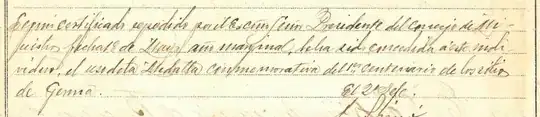 Segun certificado expedido por el Excmo Señor Presidente del Consejo de Mi-
nistros fecha de Mayo año marginal, le ha sido concedida a este indi-
viduo, el uso de la Medalla conmemorativa del 1er centenario de los sitios
de Gerona. El 2º Jefe.